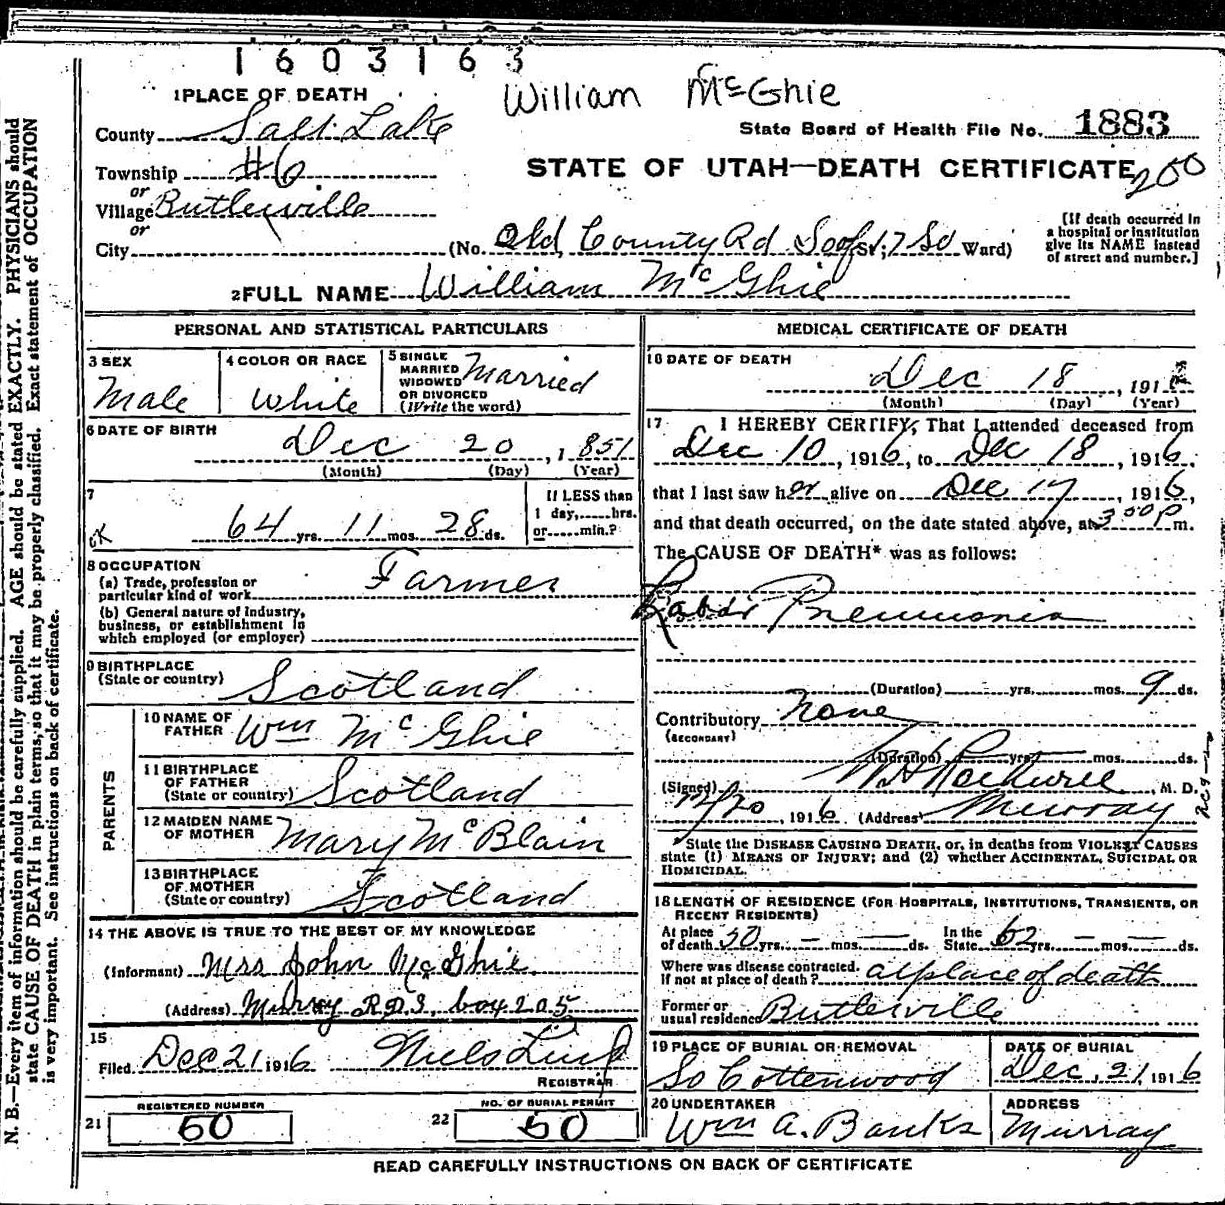 1603163
William McGhie
1 PLACE OF DEATH
County Salt Lake
State Board of Health File No. 1883
Township #6
STATE OF UTAH—DEATH CERTIFICATE
200
or
Village Butlerville
or
City
(No. Old County Rd So of St; 7 So Ward)
(If death occurred in
a hospital or institution
give its NAME instead
of street and number.]
2 FULL NAME William McGhie
PERSONAL AND STATISTICAL PARTICULARS
3 SEX
Male
4 COLOR OR RACE
White
5 SINGLE
MARRIED
WIDOWED
OR DIVORCED
(Write the word)
Married
6 DATE OF BIRTH
Dec 20, 1851
(Month) (Day) (Year)
7
OK
64 yrs. 11 mos. 28 ds.
If LESS than
1 day,......hrs.
or......min.?
8 OCCUPATION
(a) Trade, profession or
particular kind of work Farmer
(b) General nature of industry,
business, or establishment in
which employed (or employer)
9 BIRTHPLACE
(State or country) Scotland
PARENTS
10 NAME OF
FATHER Wm McGhie
11 BIRTHPLACE
OF FATHER
(State or country) Scotland
12 MAIDEN NAME
OF MOTHER Mary McBlain
13 BIRTHPLACE
OF MOTHER
(State or country) Scotland
14 THE ABOVE IS TRUE TO THE BEST OF MY KNOWLEDGE
(Informant) Mrs John McGhie
(Address) Murray R.D.3. box 205
15
Filed Dec 21 1916 Niels Lind
REGISTRAR
21 REGISTERED NUMBER
60
22 NO. OF BURIAL PERMIT
50
MEDICAL CERTIFICATE OF DEATH
16 DATE OF DEATH
Dec 18, 191
(Month) (Day) (Year)
17 I HEREBY CERTIFY, That I attended deceased from
Dec 10, 1916, to Dec 18, 1916,
that I last saw her alive on Dec 17, 1916,
and that death occurred, on the date stated above, at 3 00 P m.
The CAUSE OF DEATH* was as follows:
Lobar Pneumonia
(Duration) yrs. mos. 9 ds.
Contributory None
(SECONDARY)
(Duration) yrs. mos. ds.
(Signed) M. D.
12/20, 1916 (Address) Murray
*State the DISEASE CAUSING DEATH, or, in deaths from VIOLENT CAUSES
state (1) MEANS OF INJURY; and (2) whether ACCIDENTAL, SUICIDAL OR
HOMICIDAL.
18 LENGTH OF RESIDENCE (FOR HOSPITALS, INSTITUTIONS, TRANSIENTS, OR
RECENT RESIDENTS)
At place
of death 50 yrs. — mos. — ds.
In the
State 62 yrs. — mos. — ds.
Where was disease contracted.
if not at place of death? at place of death
Former or
usual residence Butlerville
19 PLACE OF BURIAL OR REMOVAL
So Cottenwood
DATE OF BURIAL
Dec. 21, 1916
20 UNDERTAKER
Wm A. Banks
ADDRESS
Murray
READ CAREFULLY INSTRUCTIONS ON BACK OF CERTIFICATE
N. B.—Every item of information should be carefully supplied. AGE should be stated EXACTLY. PHYSICIANS should
state CAUSE OF DEATH in plain terms, so that it may be properly classified. Exact statement of OCCUPATION
is very important. See instructions on back of certificate.